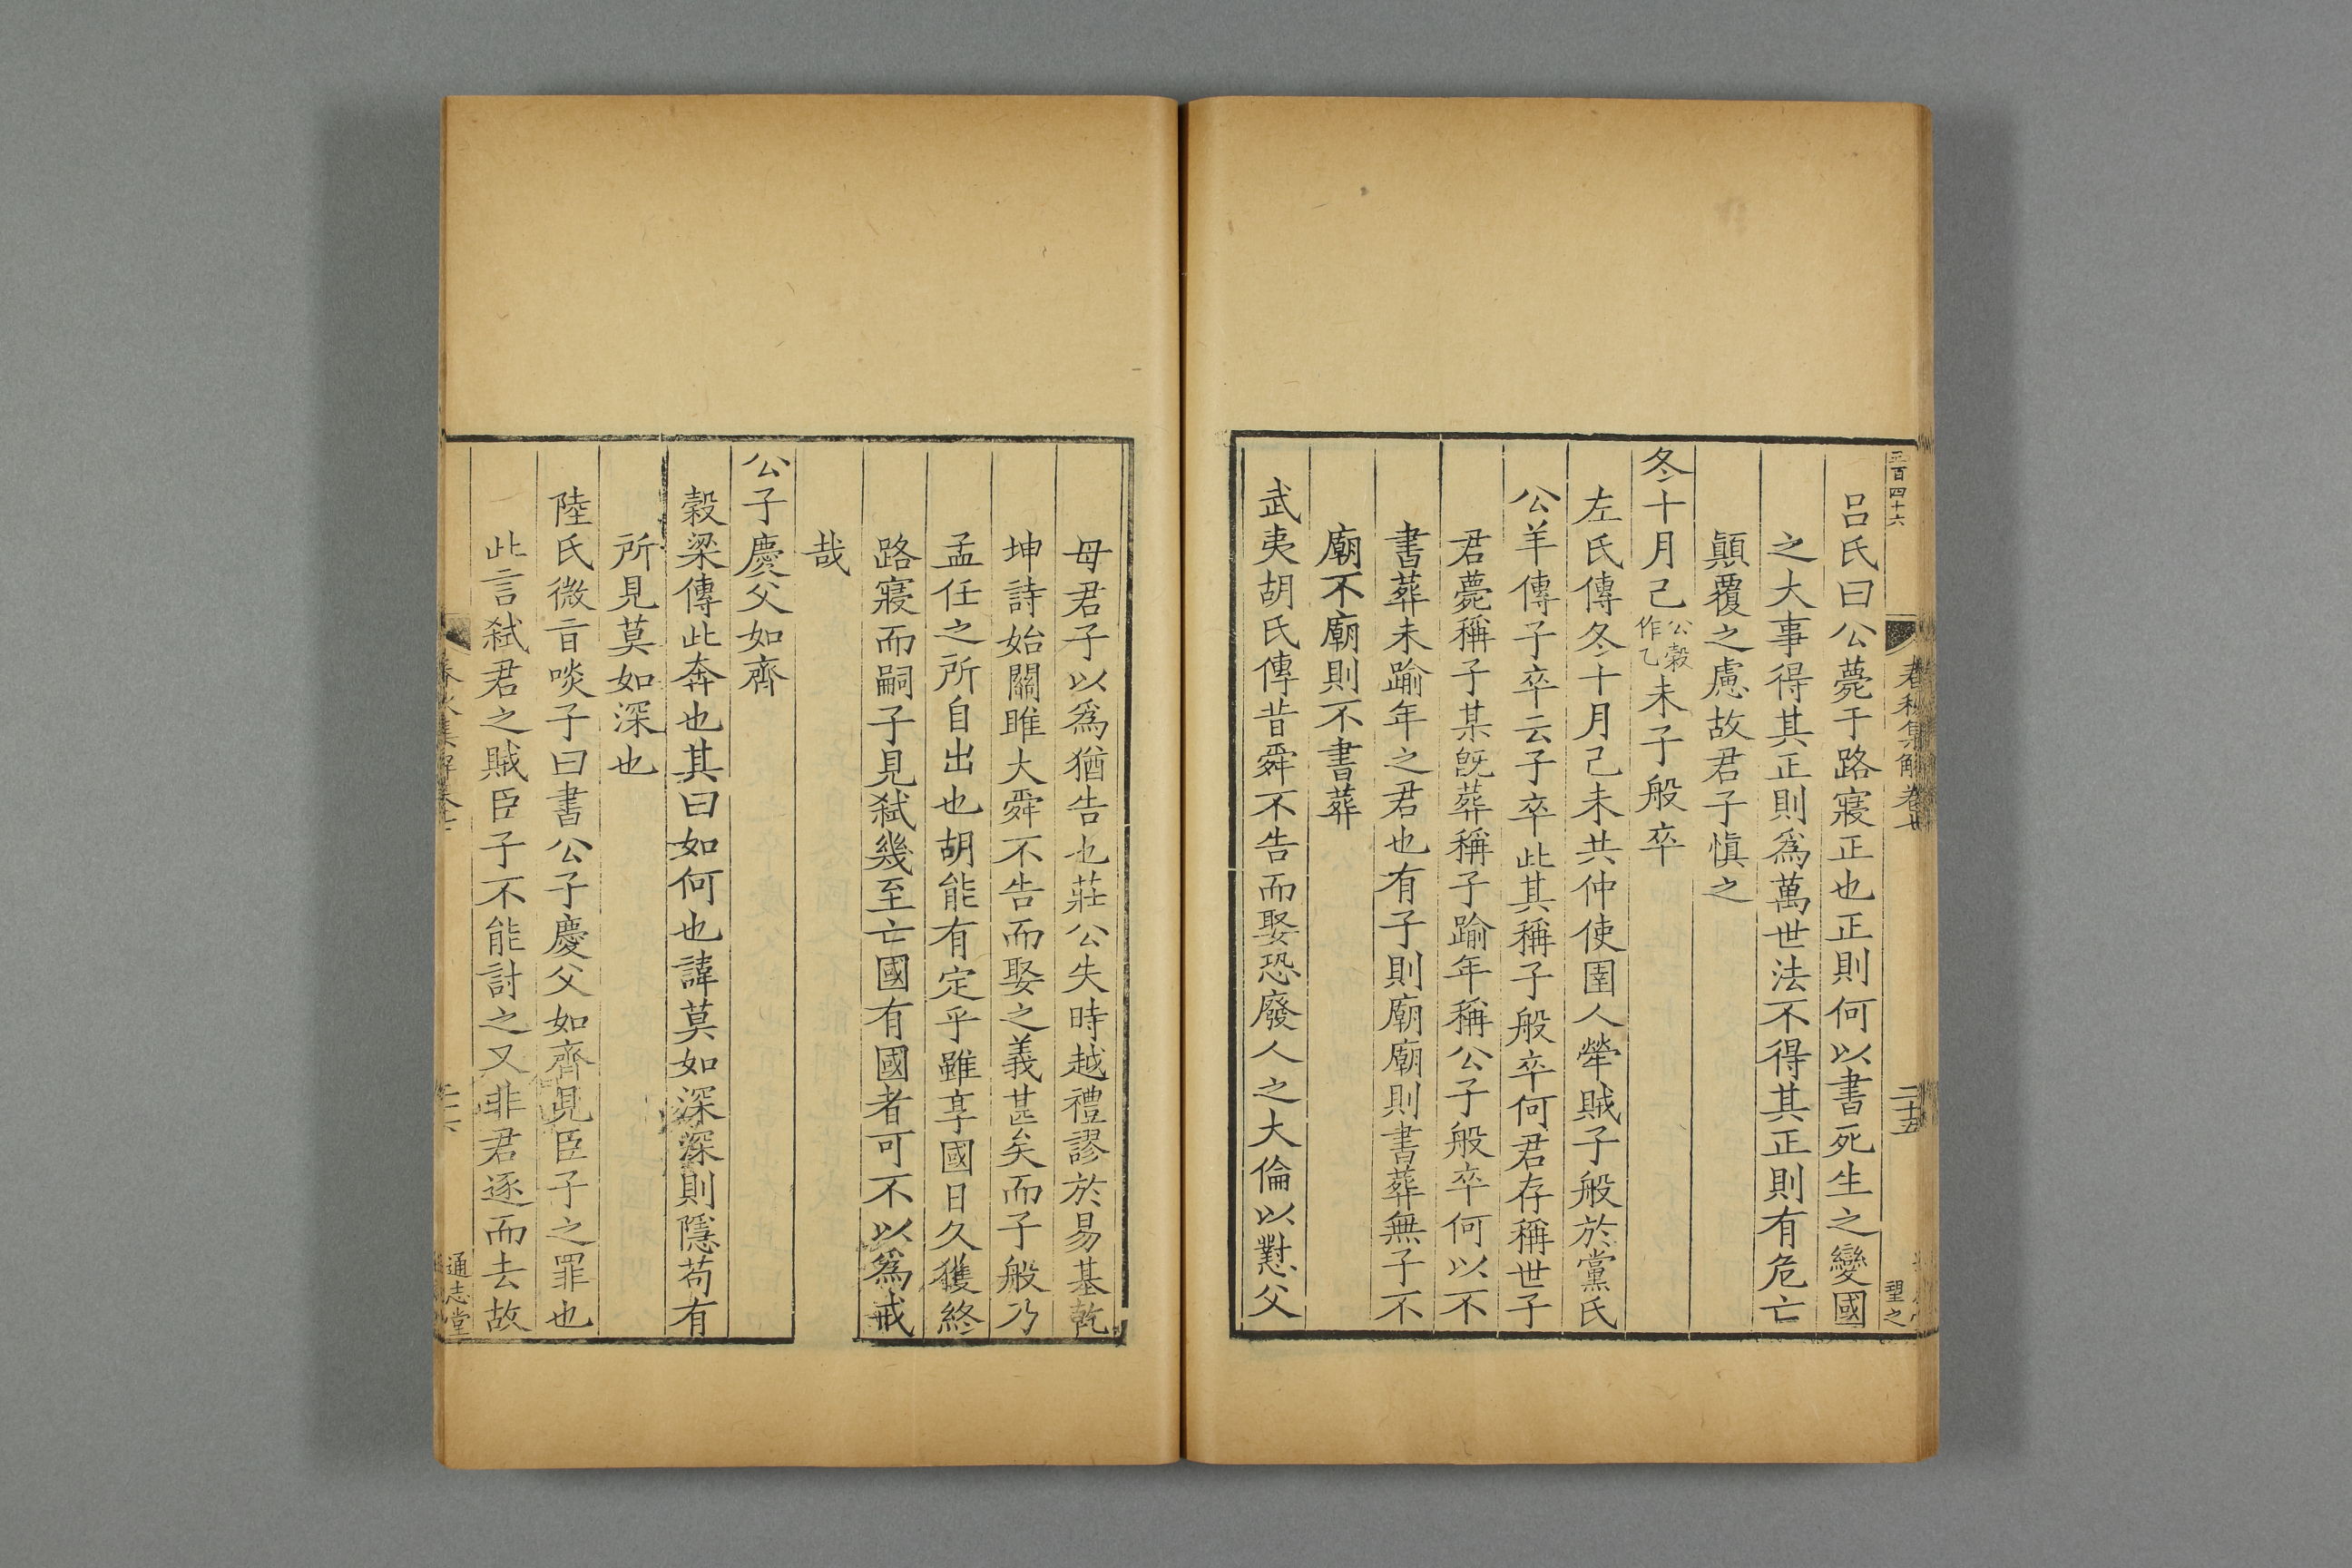 三百四十六
春秋集解卷七
二十五
望之
呂氏曰公薨于路寢正也正則何以書死生之變國
之大事得其正則爲萬世法不得其正則有危亡
顛覆之慮故君子愼之
冬十月己公穀作乙未子般卒
左氏傳冬十月己未共仲使圉人犖賊子般於黨氏
公羊傳子卒云子卒此其稱子般卒何君存稱世子
君薨稱子某旣葬稱子踰年稱公子般卒何以不
書葬未踰年之君也有子則廟廟則書葬無子不
廟不廟則不書葬
武夷胡氏傳昔舜不告而娶恐廢人之大倫以懟父
母君子以爲猶告也莊公失時越禮謬於易基乾
坤詩始關雎大舜不告而娶之義甚矣而子般乃
孟任之所自出也胡能有定乎雖享國日久獲終
路寢而嗣子見弑幾至亡國有國者可不以爲戒
哉
公子慶父如齊
穀梁傳此奔也其曰如何也諱莫如深深則隱苟有
所見莫如深也
陸氏微旨啖子曰書公子慶父如齊見臣子之罪也
此言弑君之賊臣子不能討之又非君逐而去故
通志堂